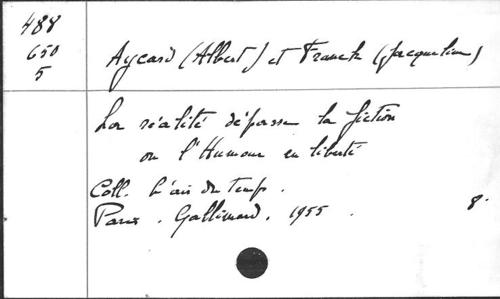 488
650
5
Aycard (Albert) et Franck (Jacqueline)
La réalité dépasse la fiction
ou l'Humour en liberté
Coll. L'air du Temps.
Paris. Gallimard. 1955. 8°